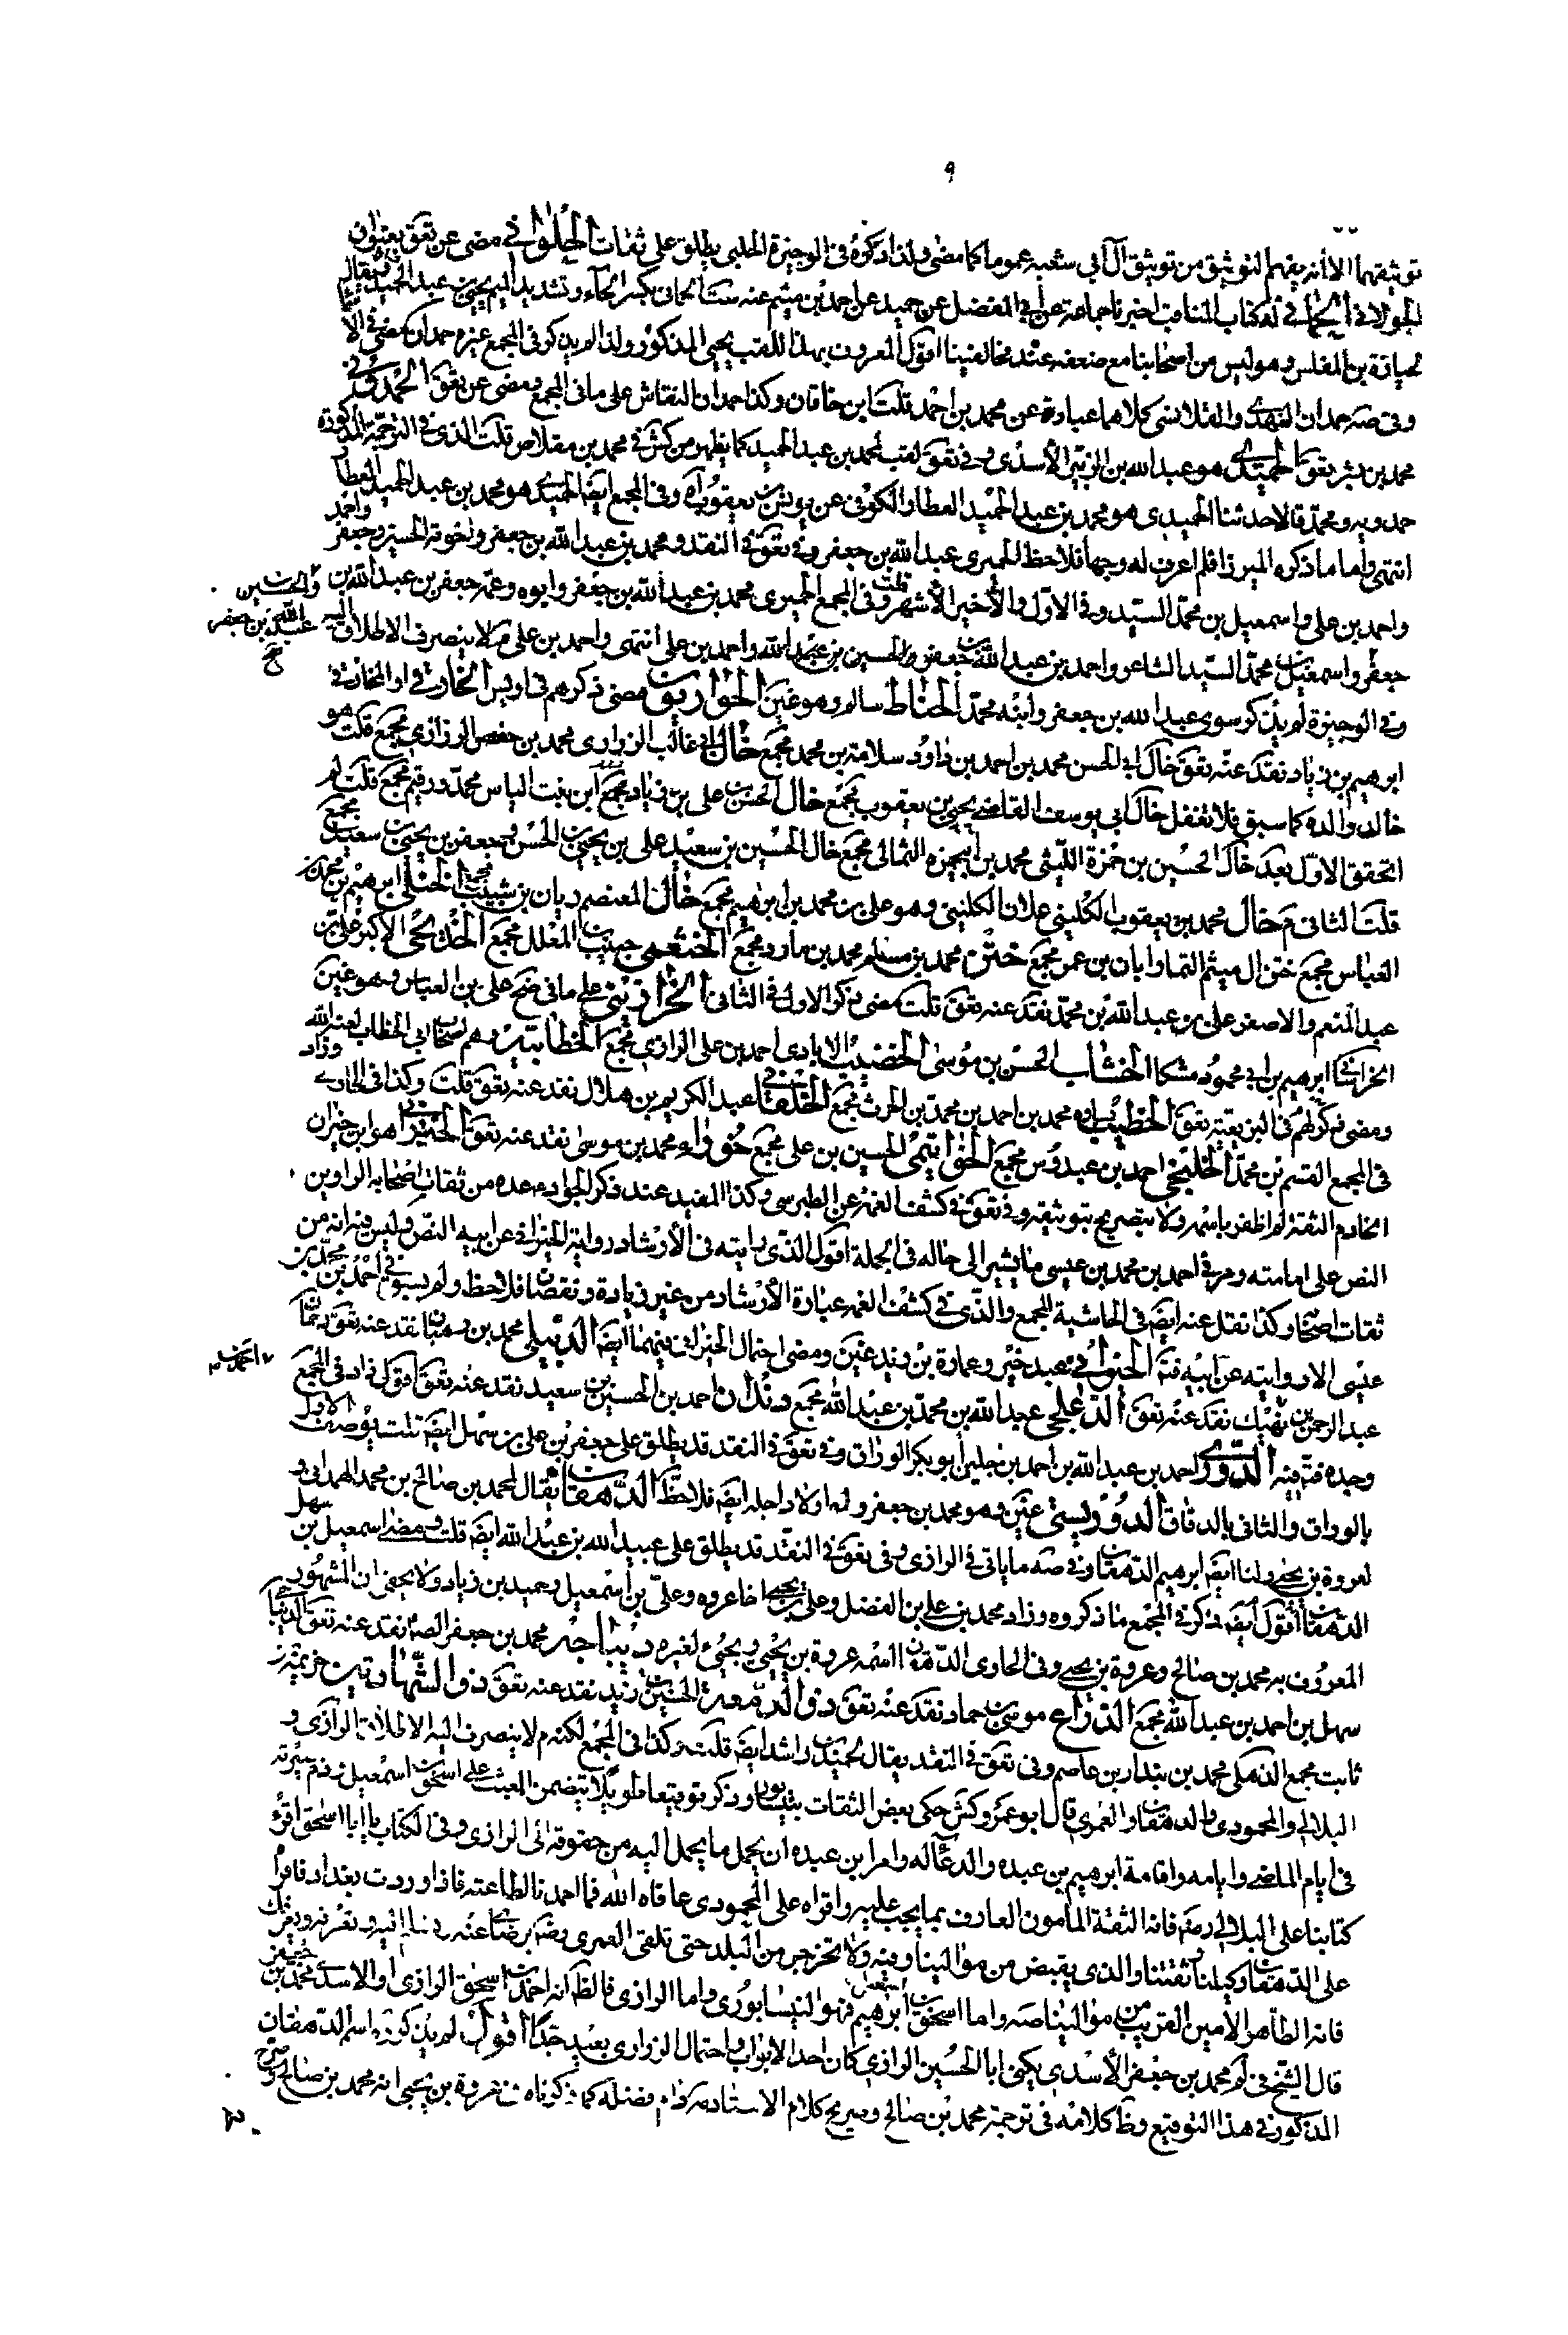 ٩
توثيقهما الا أنه يفهم التوثيق من توثيق آل أبي شعبه عموما كما مضى ولذا ذكروه في الوجيزة الحلبي يطلق على ثقات الحلواني مضى عن تعق بعنوان
الجولاني الحماني له كتاب المناقب اخبرنا جماعة عن ابي المفضل عن حميد عن احمد بن ميثم عنه ست الحماني بكسر الحاء وتشديد الميم يحيى بن عبد الحميد يقال
لجبارة بن المغلس وهو ليس من اصحابنا مع ضعفه عند مخالفينا اقول المعروف بهذا اللقب يحيى المذكور ولذا لم يذكر في المجمع غيره حمدان مضى في
وفي صه حمدان النهدي والقلانسي كلاهما عبارة عن محمد بن احمد قلت ابن خاقان وكذا حمدان النقاش على ما في المجمع ومضى عن تعق الحمدوني
محمد بن بشر تعق الحميدي هو عبد الله بن الزبير الأسدي وفي تعق لقب لمحمد بن عبد الحميد كما يظهر من كش في محمد بن مقلاص قلت الذي في الترجمة المذكورة
حمدويه ومحمد قالا حدثنا الحميدي هو محمد بن عبد الحميد العطار الكوفي عن يونس بن يعقوب اه وفي المجمع ايضا الحميدي هو محمد بن عبد الحميد العطار
انتهى وأما ما ذكره الميرزا فلم اعرف له وجها فلاحظ الحميري عبد الله بن جعفر وفي تعق في النقد ومحمد بن عبد الله بن جعفر واخوته الحسين وجعفر واحمد
واحمد بن علي واسمعيل بن محمد السيد وفي الاول والأخير الأشهر قلت وفي المجمع الحميري محمد بن عبد الله بن جعفر وابوه وعمه جعفر بن عبد الله بن والحسين بن عبد الله بن جعفر
جعفر واسمعيل بن محمد السيد الشاعر واحمد بن عبد الله بن جعفر والحسين بن عبد الله واحمد بن علي انتهى واحمد بن علي م لا ينصرف الاطلاق اليه
وفي الوجيزة لم يذكر سوى عبد الله بن جعفر وابنه محمد الحناط سالم وهو غين الحواريون مضى ذكرهم في اويس الخارفي او المخارفي
ابرهيم بن زياد نقد عنه تعق خال ابي الحسن محمد بن احمد بن داود سلامة بن محمد مجمع خال ابي غالب الزراري محمد بن جعفر الرزاز مجمع قلت هو
خالد والده كما سبق فلا تغفل خال ابي يوسف القاضي يحيى بن يعقوب مجمع خال الحسن بن علي بن زياد مجمع ابن بنت الياس محمد ورقيم مجمع قلت لم
اتحقق الاول بعد خال الحسين بن حمزة الليثي محمد بن ابي حمزة الثمالي مجمع خال الحسين بن سعيد علي بن يحيى بن الحسن وجعفر بن يحيى بن سعيد مجمع
قلت الثاني م خال محمد بن يعقوب الكليني علان الكليني وهو علي بن محمد بن ابرهيم مجمع خال المعتصم ريان بن شبيب مجمع الختلي ابرهيم بن محمد بن
العباس مجمع ختن ال ميثم التمار ابان بن عمر مجمع ختن محمد بن مسلم محمد بن مارد مجمع الخثعمي حبيب بن المعلل مجمع الخديجي الاكبر علي بن
عبد المنعم والاصغر علي بن عبد الله بن محمد نقد عنه تعق قلت مضى ذكر الاول في الثاني الخراذيني على ما في ضح علي بن العباس وهو غين
الخراساني ابرهيم بن ابي محمود مشكا الخشاب الحسن بن موسى الخضيب الايادي احمد بن علي الرازي مجمع الخطابية هم اصحاب ابي الخطاب لعنه الله
ومضى ذكرهم في البزيعية تعق الخطيب ساوه محمد بن احمد بن محمد بن الحرث مجمع الخلقاني عبد الكريم بن هلال نقد عنه تعق قلت وكذا في الحاوي وزاد
في المجمع القسم بن محمد الخليجي احمد بن عبدوس مجمع الخواتيمي الحسين بن علي مجمع خوراء محمد بن موسى نقد عنه تعق الخيراني هو ابن خيران
الخادم الثقة لم اظفر باسمه ولا بتصريح بتوثيقه وفي تعق في كشف الغمة عن الطبرسي وكذا المفيد عند ذكر الجواد ع عده من ثقات اصحابه الراوين
النص على امامته ومر في احمد بن محمد بن عيسى ما يشير الى حاله في الجملة اقول الذي رايته في الأرشاد رواية الخيراني عن ابيه النص وليس فيه انه من
ثقات اصحابه وكذا نقل عنه ايضا في الحاشية المجمع والذي في كشف الغمه عبارة الأرشاد من غير زيادة ونقصان فلاحظ ولم يسبق في احمد بن محمد بن
عيسى الا روايته عن ابيه فتم الخيواني عبد خير وعمارة بن زيد غين ومضى احتمال الخيراني فيهما ايضا الدبيلي محمد بن وهبان نقد عنه تعق دحمان احمد بن
عبد الرحمن بن نهيك نقد عنه تعق الدعلجي عبد الله بن محمد بن عبد الله مجمع دندان احمد بن الحسين بن سعيد نقد عنه تعق اقول زاد في المجمع
وجده فتم فيه الدوري احمد بن عبد الله بن احمد بن جلين ابو بكر الوراق وفي تعق في النقد قد يطلق على جعفر بن علي بن سهل ايضا قلت يوصف الاول
بالوراق والثاني بالدقاق الدوريستي غين وهو محمد بن جعفر وله اولاد اجله ايضا فلاحظ الدهقان يقال لمحمد بن صالح بن محمد الهمداني و
لعروة بن يحيى ولنا ايضا ابرهيم الدهقان وفي صه ما ياتي في الرازي وفي تعق في النقد قد يطلق على عبيد الله بن عبد الله ايضا قلت ومضى اسمعيل بن سهل
الدهقان اقول ايضا ذكر في المجمع ما ذكروه وزاد محمد بن علي بن الفضل وعلي بن يحيى اخا عروه وعلي بن اسمعيل وحميد بن زياد ولا يخفى ان المشهور
المعروف به محمد بن صالح وعروة بن يحيى وفي الحاوي الدهقان اسمه عروة بن يحيى ويجيء لغيره ديباجه محمد بن جعفر الصه نقد عنه تعق
سهل بن احمد بن عبد الله مجمع الذراع موسى بن حماد نقد عنه تعق ذو الدمعة الحسين بن زيد نقد عنه تعق ذو الشهادتين خزيمة بن
ثابت مجمع الذهلي محمد بن بندار بن عاصم وفي تعق في النقد يقال لحميد بن راشد ايضا قلت وكذا في المجمع لكنه م لا ينصرف اليه الاطلاق الرازي و
البلالي والمحمودي والدهقان والعمري قال ابو عمرو كش حكى بعض الثقات بنيسابور وذكر توقيعا طويلا يتضمن العبث على اسحق بن اسمعيل وذم سيرته
في ايام الماضي وايامه واقامة ابرهيم بن عبده والدعاء له وامر ابن عبده ان يحمل ما يحمل اليه من حقوقه الى الرازي وفي الكتاب يا ابا اسحق اقرء
كتابنا على البلالي رضه فانه الثقة المأمون العارف بما يجب عليه واقراه على المحمودي عافاه الله فما احمدنا لطاعته فاذا وردت بغداد فاقراه
على الدهقان وكيلنا ثقتنا والذي يقبض من موالينا وفيه ولا تخرجن من البلد حتى تلقى العمري رضه برضائي عنه وتسلم عليه وتعرفه ويعرفك
فانه الطاهر الأمين القريب من موالينا صه واما اسحق بن اسمعيل ابرهيم فهو النيسابوري واما الرازي فالظ انه احمد بن اسحق الرازي او الاسدي محمد بن جعفر
قال الشيخ في لم محمد بن جعفر الأسدي يكنى ابا الحسين الرازي كان احد الابواب واحتمال الزراري بعيد جدا اقول لم يذكر ره اسم الدهقان
المذكور في هذا التوقيع وظ كلامه في ترجمة محمد بن صالح وصريح كلام الاستاد مد فضله كما ذكرناه في عروة بن يحيى انه محمد بن صالح